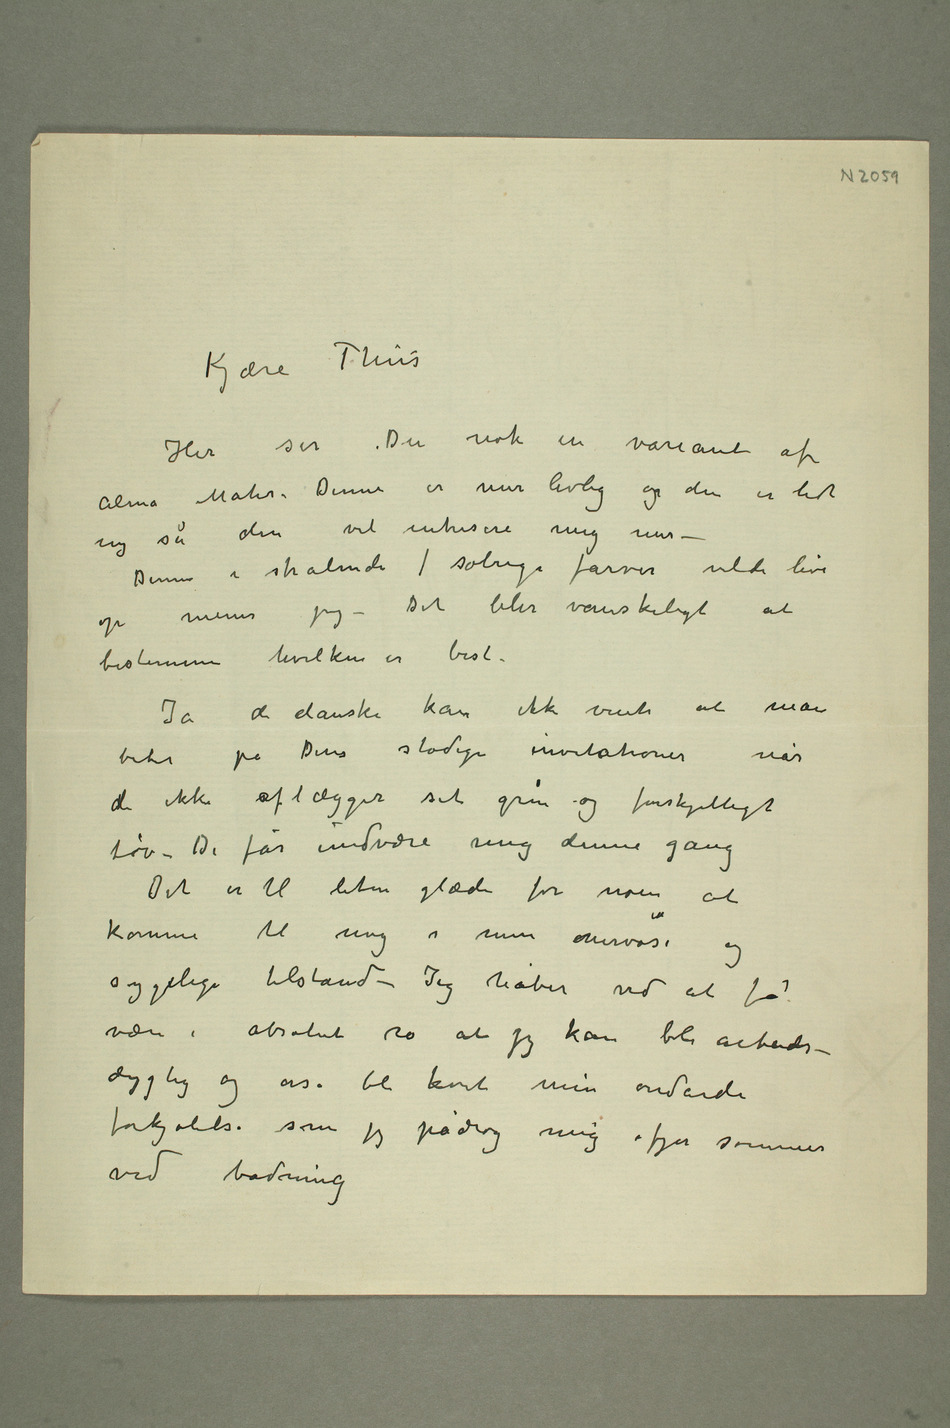 N 2059
Kjære Thiis
Her ser Du nok en variant af
Alma Mater. Denne er mer livlig og den er lidt
ny så den vil intresere mig mer –
Denne i strålende / solrige farver vilde live
op mener jeg – Det blir vanskeligt at
bestemme hvilken er best.
Ja de danske kan ikke vente at man
biter på Deres stadige invitationer når
de ikke aflægger sit grin og forskjelligt
tøv – De får undvære mig denne gang
Det er til liten glæde for noen at
komme til mig i min nervøse og
sygelige tilstand – Jeg håber ved at få
være i absolut ro at jeg kan bli arbeids–
dygtig og osse bli kvit min ondarde
forkjølelse som jeg pådrog mig ifjor sommer
ved badning